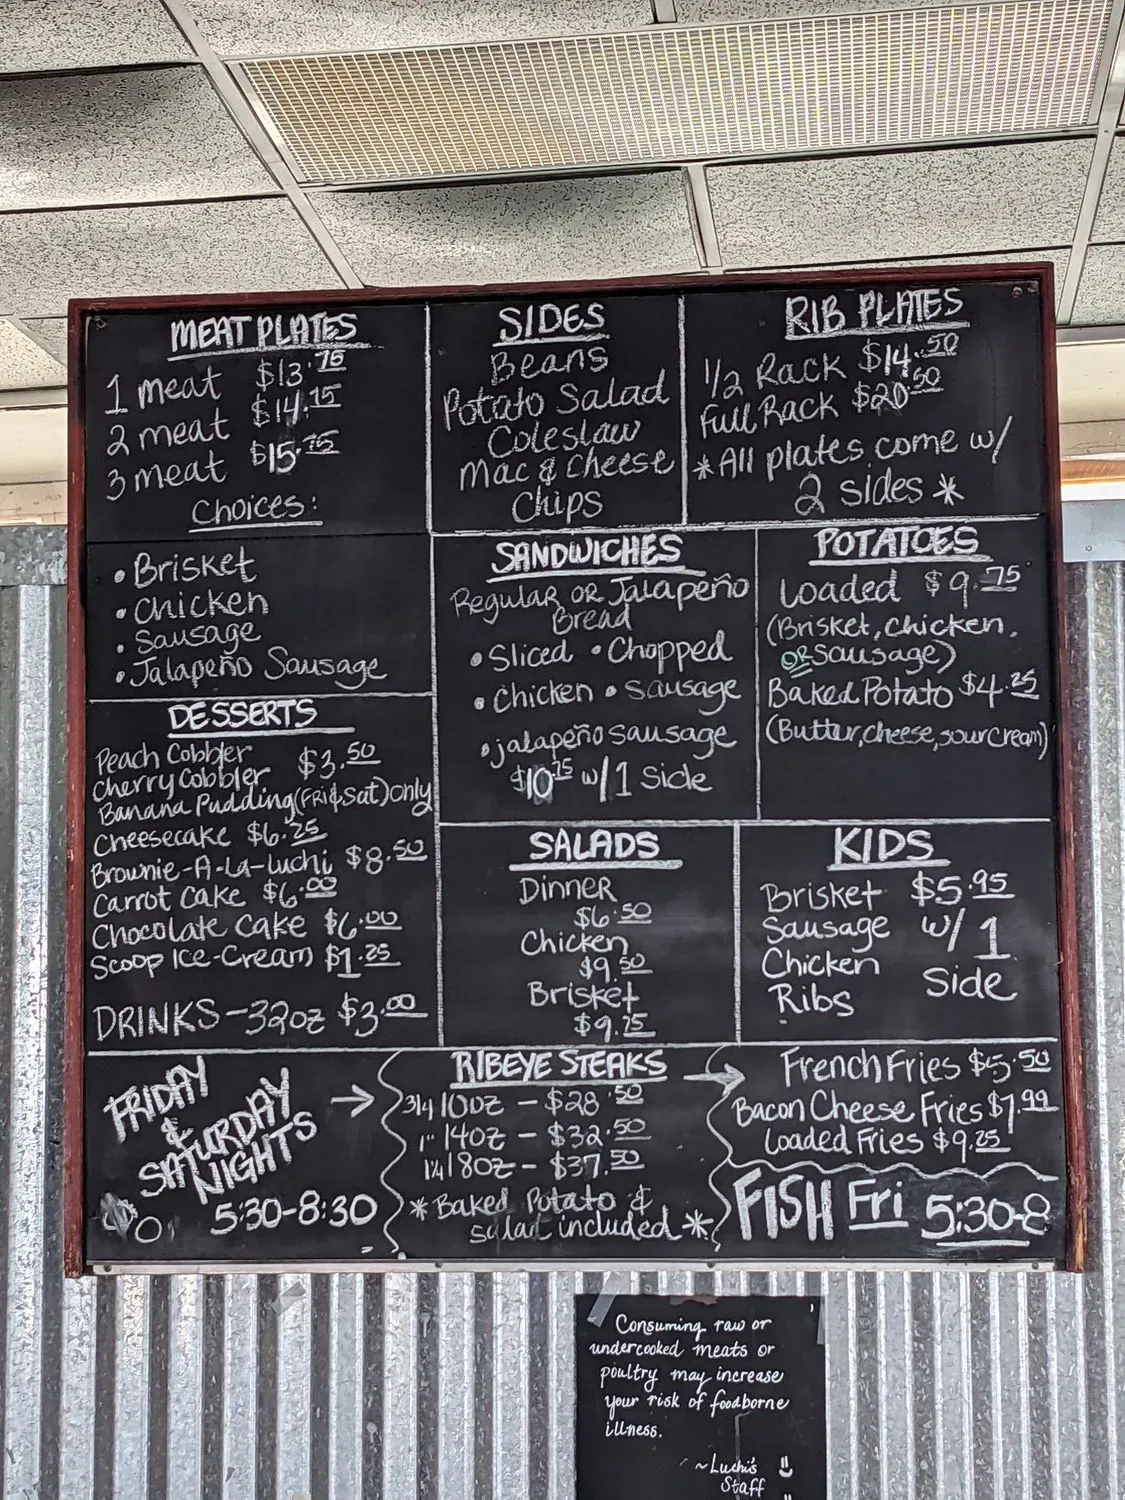 MEAT PLATES
1 meat $13.75
2 meat $14.75
3 meat $15.75
Choices:
• Brisket
• Chicken
• Sausage
• Jalapeño Sausage
SIDES
Beans
Potato Salad
Coleslaw
Mac & Cheese
Chips
RIB PLATES
1/2 Rack $14.50
Full Rack $20.50
*All plates come w/
2 sides*
SANDWICHES
Regular OR Jalapeño
Bread
• Sliced • Chopped
• Chicken • Sausage
• jalapeño sausage
$10.75 w/1 Side
POTATOES
Loaded $9.75
(Brisket, Chicken,
OR Sausage)
Baked Potato $4.25
(Butter, cheese, sour cream)
DESSERTS
Peach Cobbler
Cherry Cobbler $3.50
Banana Pudding (FRi & Sat) Only
Cheesecake $6.25
Brownie-A-La-Luchi $8.50
Carrot Cake $6.00
Chocolate Cake $6.00
Scoop Ice-Cream $1.25
DRINKS-32oz $3.00
SALADS
Dinner
$6.50
Chicken
$9.50
Brisket
$9.75
KIDS
Brisket $5.95
Sausage w/1
Chicken Side
Ribs
FRIDAY
&
SATURDAY
NIGHTS
5:30-8:30
RIBEYE STEAKS
3/4 10oz - $28.50
1" 14oz - $32.50
1 1/4 18oz - $37.50
*Baked Potato &
salad included*
French Fries $5.50
Bacon Cheese Fries $7.99
Loaded Fries $9.25
FISH Fri 5:30-8
Consuming raw or
undercooked meats or
poultry may increase
your risk of foodborne
illness.
~Luchi's
Staff